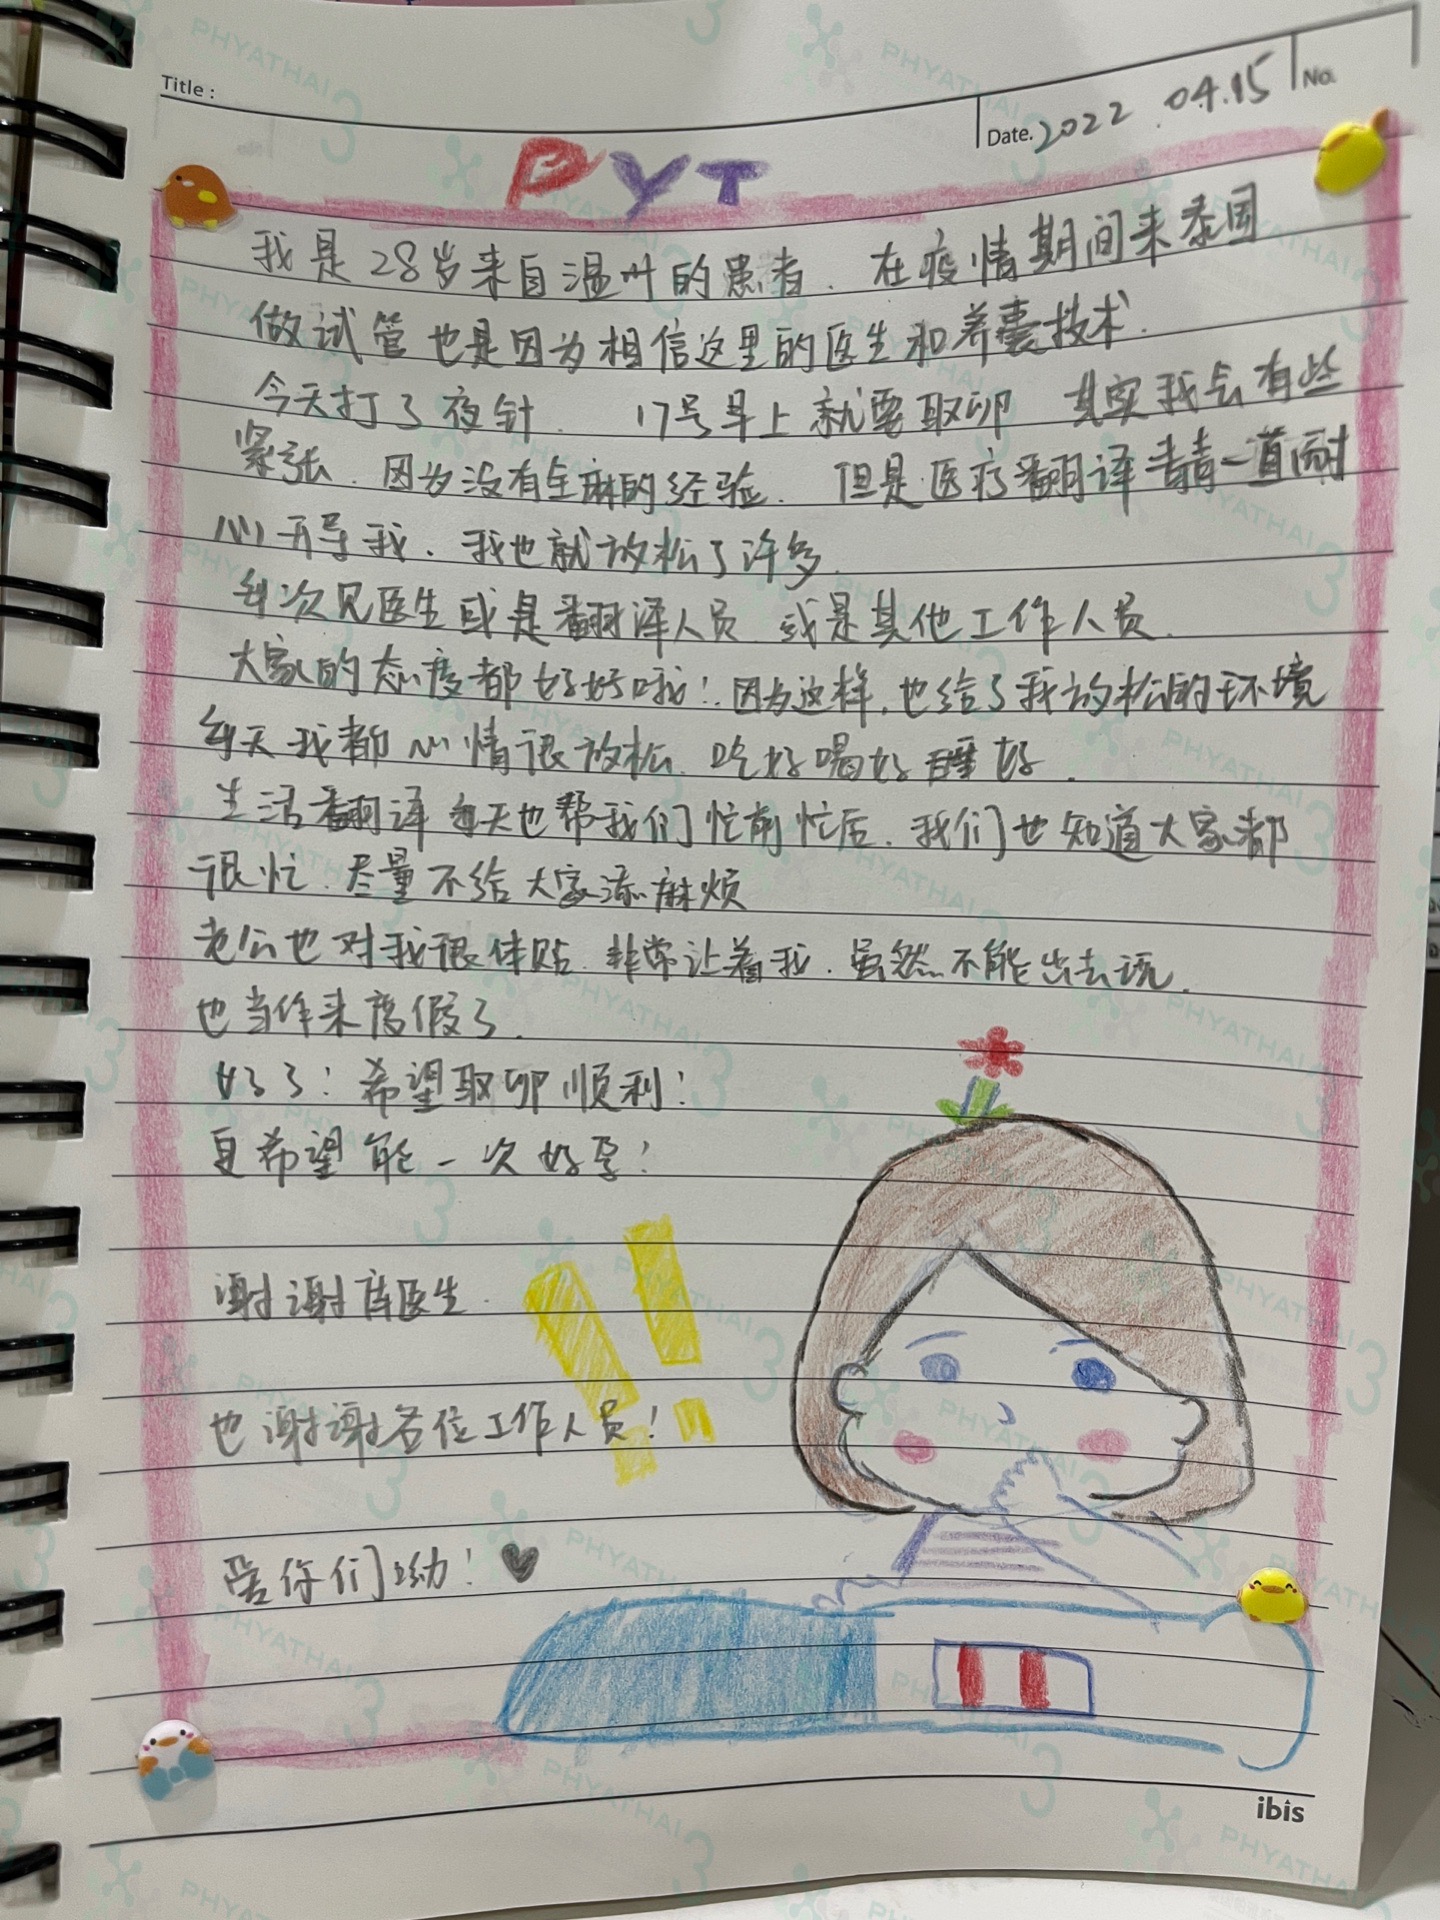 Title :
Date. 2022.04.15
No.
PYT
我是28岁来自温州的患者. 在疫情期间来泰国
做试管也是因为相信这里的医生和养囊技术.
今天打了夜针. 17号早上就要取卵 其实我会有些
紧张. 因为没有全麻的经验. 但是医疗翻译青青一直耐
心开导我. 我也就放松了许多.
每次见医生或是翻译人员. 或是其他工作人员.
大家的态度都好好哦! 因为这样, 也给了我放松的环境
每天我都心情很放松. 吃好喝好睡好.
生活翻译每天也帮我们忙前忙后. 我们也知道大家都
很忙. 尽量不给大家添麻烦
老公也对我很体贴. 非常让着我. 虽然不能出去玩.
也当作来度假了.
好了! 希望取卵顺利!
更希望能一次好孕!
谢谢医生.
也谢谢各位工作人员!
爱你们呦!
ibis
PHYATHAI 3